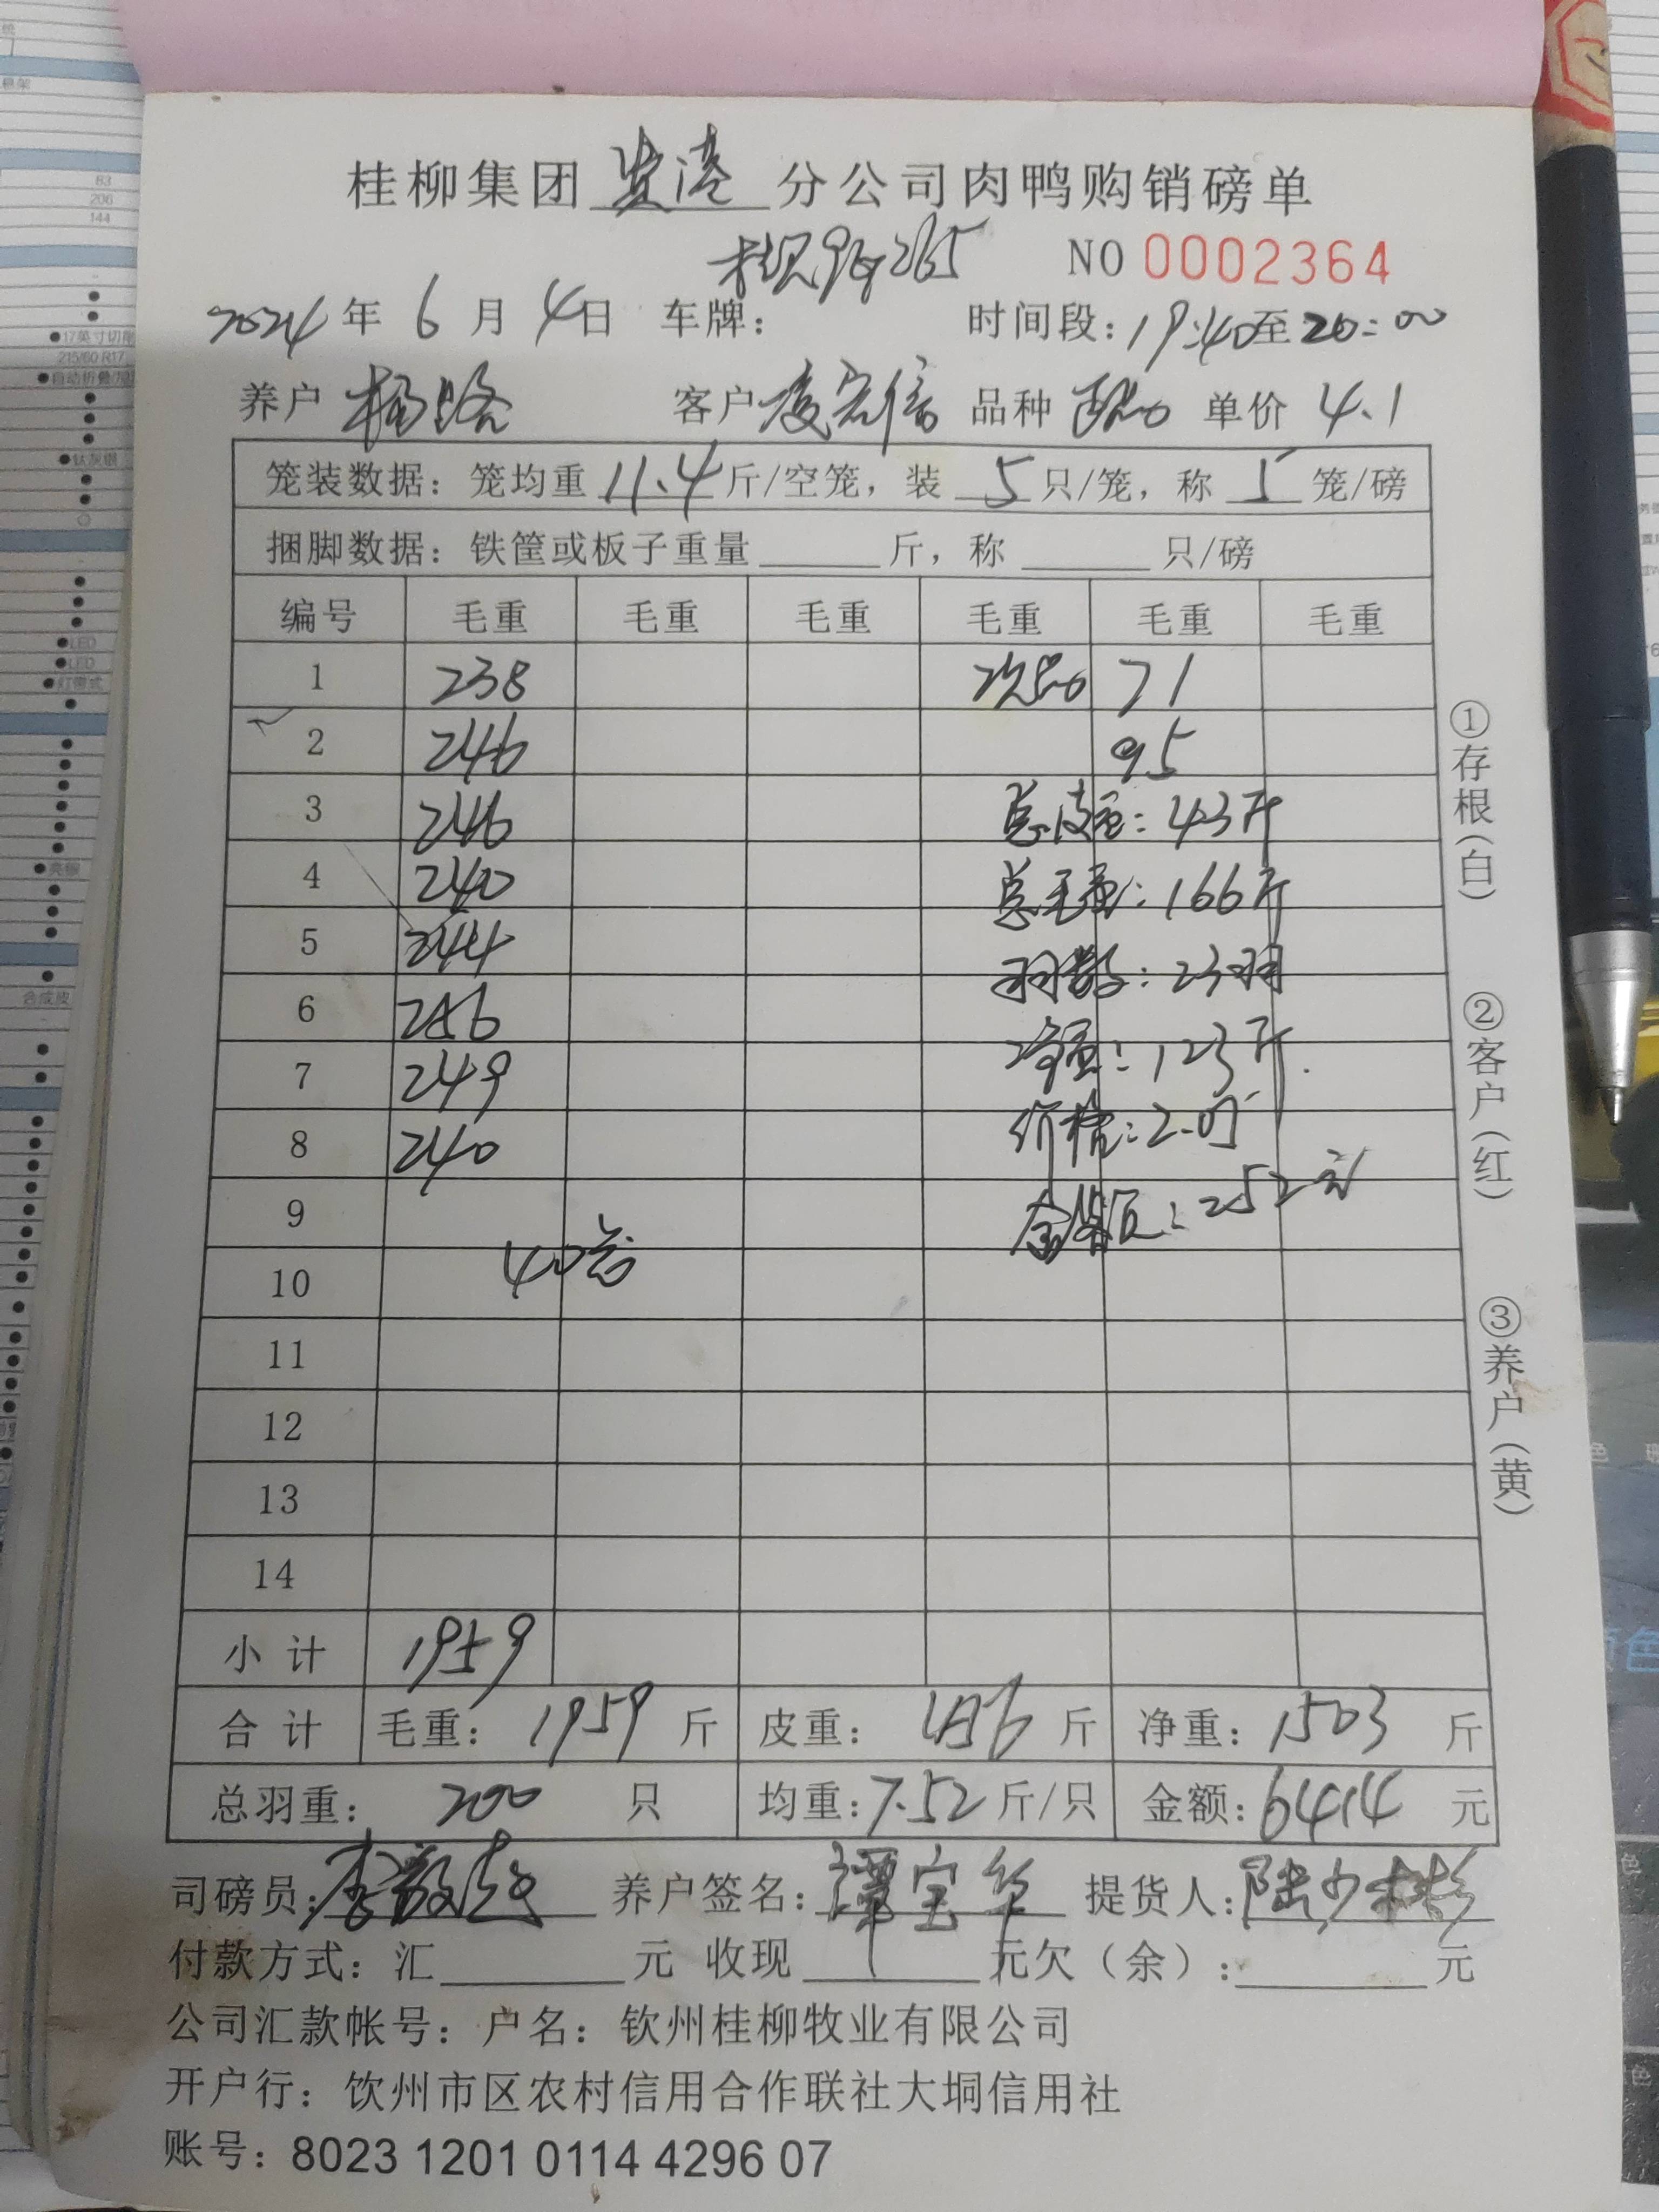 桂柳集团 贵港 分公司肉鸭购销磅单
NO 0002364
2024 年 6 月 4 日 车牌： 时间段：19:40至20:00
养户 杨路 客户 凌宏信 品种 单价 4.1
笼装数据：笼均重 11.4 斤/空笼，装 5 只/笼，称 5 笼/磅
捆脚数据：铁筐或板子重量 斤，称 只/磅
编号 毛重 毛重 毛重 毛重 毛重 毛重
1 238 次品 71
2 246 95
3 246 总皮重：43斤
4 240 总毛重：166斤
5 244 羽数：23羽
6 256 净重：123斤
7 249 价格：2.05
8 240
9 金额：252元
10 40笼
11
12
13
14
小 计 1959
合 计 毛重：1959 斤 皮重：456 斤 净重：1503 斤
总羽重：200 只 均重：7.52 斤/只 金额：6414 元
司磅员： 养户签名：谭宝华 提货人：陆少彬
付款方式：汇 元 收现 元欠（余）： 元
公司汇款帐号：户名：钦州桂柳牧业有限公司
开户行：饮州市区农村信用合作联社大垌信用社
账号：8023 1201 0114 4296 07
①存根（白） ②客户（红） ③养户（黄）